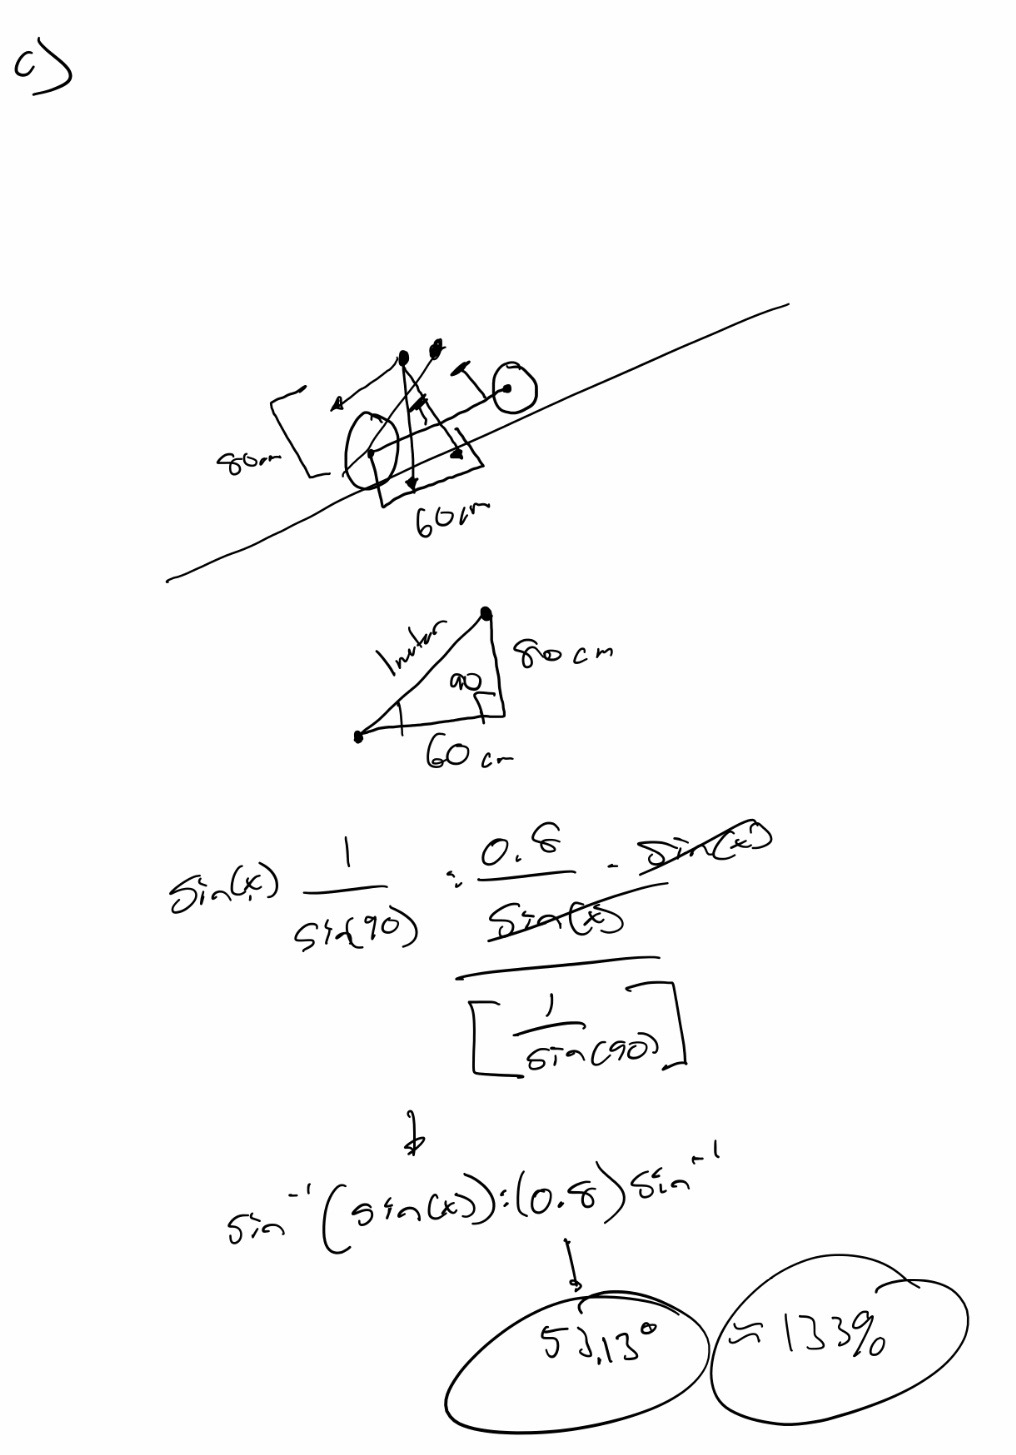 c)
80cm
60cm
1 meter
80 cm
90
60 cm
sin(x) 1/sin(90) = 0.8/sin(x) · sin(x)
[1/sin(90)]
sin⁻¹(sin(x)) = (0.8) sin⁻¹
53.13° ≈ 133%